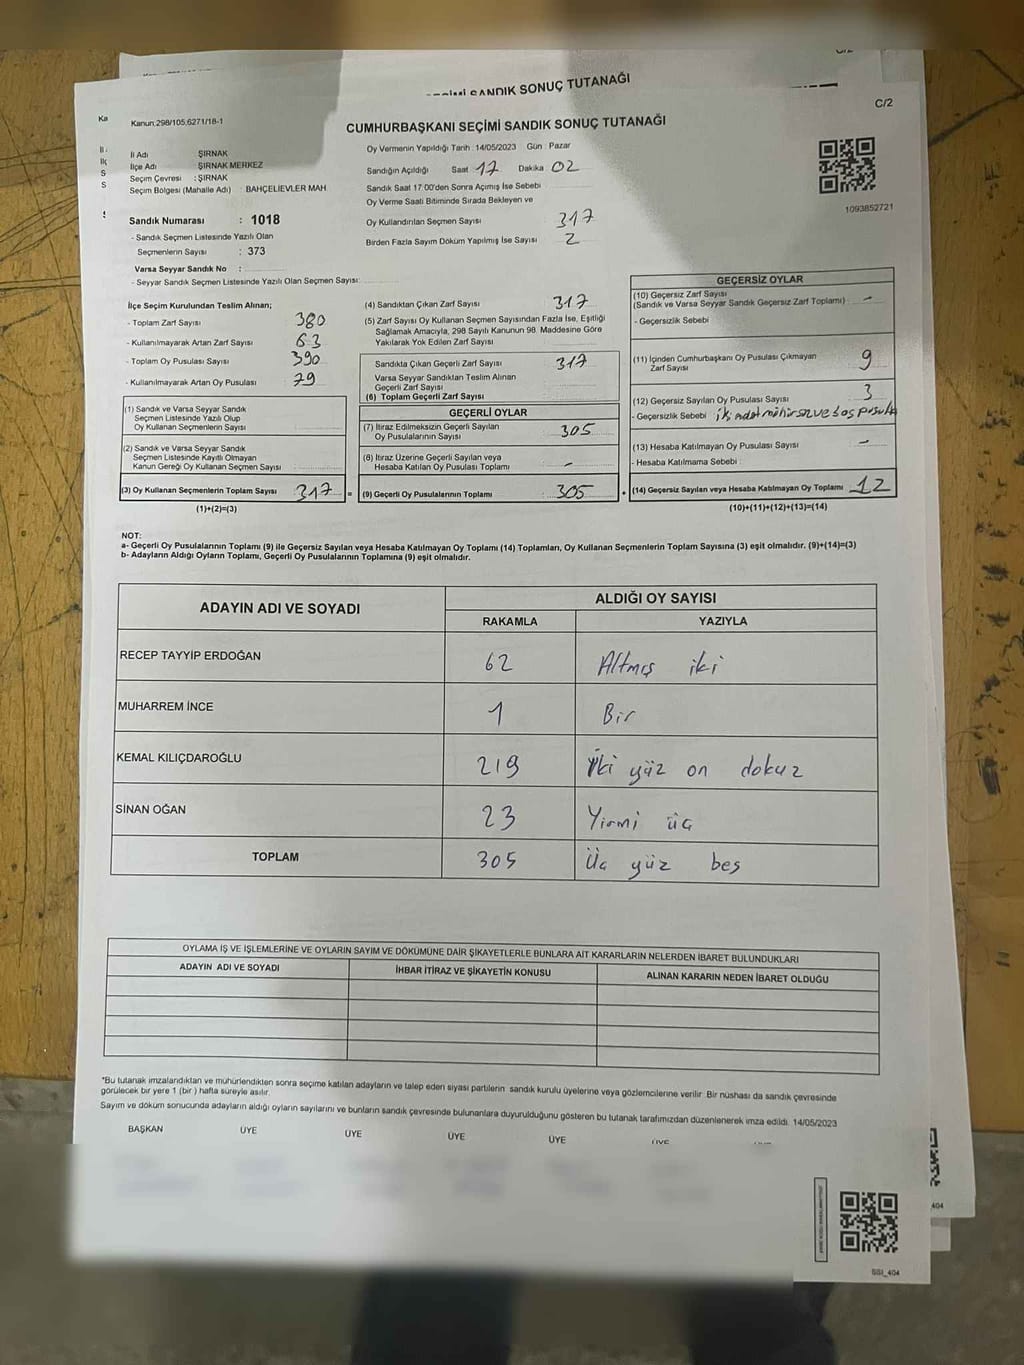 SANDIK SONUÇ TUTANAĞI
C/2
Kanun:298/105,6271/18-1
CUMHURBAŞKANI SEÇİMİ SANDIK SONUÇ TUTANAĞI
İl Adı ŞIRNAK
İlçe Adı ŞIRNAK MERKEZ
Seçim Çevresi : ŞIRNAK
Seçim Bölgesi (Mahalle Adı) : BAHÇELİEVLER MAH.
Sandık Numarası : 1018
- Sandık Seçmen Listesinde Yazılı Olan
Seçmenlerin Sayısı : 373
Varsa Seyyar Sandık No :
- Seyyar Sandık Seçmen Listesinde Yazılı Olan Seçmen Sayısı:
Oy Vermenin Yapıldığı Tarih : 14/05/2023 Gün : Pazar
Sandığın Açıldığı Saat 17 Dakika 02
Sandık Saat 17:00'den Sonra Açımış İse Sebebi
Oy Verme Saati Bitiminde Sırada Bekleyen ve
Oy Kullandırılan Seçmen Sayısı 317
Birden Fazla Sayım Döküm Yapılmış İse Sayısı 2
1093852721
İlçe Seçim Kurulundan Teslim Alınan;
- Toplam Zarf Sayısı 380
- Kullanılmayarak Artan Zarf Sayısı 63
- Toplam Oy Pusulası Sayısı 390
- Kullanılmayarak Artan Oy Pusulası 79
(1) Sandık ve Varsa Seyyar Sandık
Seçmen Listesinde Yazılı Olup
Oy Kullanan Seçmenlerin Sayısı
(2) Sandık ve Varsa Seyyar Sandık
Seçmen Listesinde Kayıtlı Olmayan
Kanun Gereği Oy Kullanan Seçmen Sayısı
(3) Oy Kullanan Seçmenlerin Toplam Sayısı 317 =
(1)+(2)=(3)
(4) Sandıktan Çıkan Zarf Sayısı 317
(5) Zarf Sayısı Oy Kullanan Seçmen Sayısından Fazla İse, Eşitliği
Sağlamak Amacıyla, 298 Sayılı Kanunun 98. Maddesine Göre
Yakılarak Yok Edilen Zarf Sayısı
Sandıkta Çıkan Geçerli Zarf Sayısı 317
Varsa Seyyar Sandıktan Teslim Alınan
Geçerli Zarf Sayısı
(6) Toplam Geçerli Zarf Sayısı
GEÇERLİ OYLAR
(7) İtiraz Edilmeksizin Geçerli Sayılan
Oy Pusulalarının Sayısı 305
(8) İtiraz Üzerine Geçerli Sayılan veya
Hesaba Katılan Oy Pusulası Toplamı -
(9) Geçerli Oy Pusulalarının Toplamı 305
GEÇERSİZ OYLAR
(10) Geçersiz Zarf Sayısı
(Sandık ve Varsa Seyyar Sandık Geçersiz Zarf Toplamı) -
- Geçersizlik Sebebi
(11) İçinden Cumhurbaşkanı Oy Pusulası Çıkmayan
Zarf Sayısı 9
(12) Geçersiz Sayılan Oy Pusulası Sayısı 3
- Geçersizlik Sebebi iki adet mühürsüz ve boş pusula
(13) Hesaba Katılmayan Oy Pusulası Sayısı -
- Hesaba Katılmama Sebebi
(14) Geçersiz Sayılan veya Hesaba Katılmayan Oy Toplamı 12
(10)+(11)+(12)+(13)=(14)
NOT:
a- Geçerli Oy Pusulalarının Toplamı (9) ile Geçersiz Sayılan veya Hesaba Katılmayan Oy Toplamı (14) Toplamları, Oy Kullanan Seçmenlerin Toplam Sayısına (3) eşit olmalıdır. (9)+(14)=(3)
b- Adayların Aldığı Oyların Toplamı, Geçerli Oy Pusulalarının Toplamına (9) eşit olmalıdır.
ADAYIN ADI VE SOYADI ALDIĞI OY SAYISI
RAKAMLA YAZIYLA
RECEP TAYYİP ERDOĞAN 62 Altmış iki
MUHARREM İNCE 1 Bir
KEMAL KILIÇDAROĞLU 219 İki yüz on dokuz
SİNAN OĞAN 23 Yirmi üç
TOPLAM 305 Üç yüz beş
OYLAMA İŞ VE İŞLEMLERİNE VE OYLARIN SAYIM VE DÖKÜMÜNE DAİR ŞİKAYETLERLE BUNLARA AİT KARARLARIN NELERDEN İBARET BULUNDUKLARI
ADAYIN ADI VE SOYADI İHBAR İTİRAZ VE ŞİKAYETİN KONUSU ALINAN KARARIN NEDEN İBARET OLDUĞU
*Bu tutanak imzalandıktan ve mühürlendikten sonra seçime katılan adayların ve talep eden siyasi partilerin sandık kurulu üyelerine veya gözlemcilerine verilir. Bir nüshası da sandık çevresinde
görülecek bir yere 1 (bir ) hafta süreyle asılır.
Sayım ve döküm sonucunda adayların aldığı oyların sayılarını ve bunların sandık çevresinde bulunanlara duyurulduğunu gösteren bu tutanak tarafımızdan düzenlenerek imza edildi. 14/05/2023
BAŞKAN ÜYE ÜYE ÜYE ÜYE ÜYE
404
SSI_404